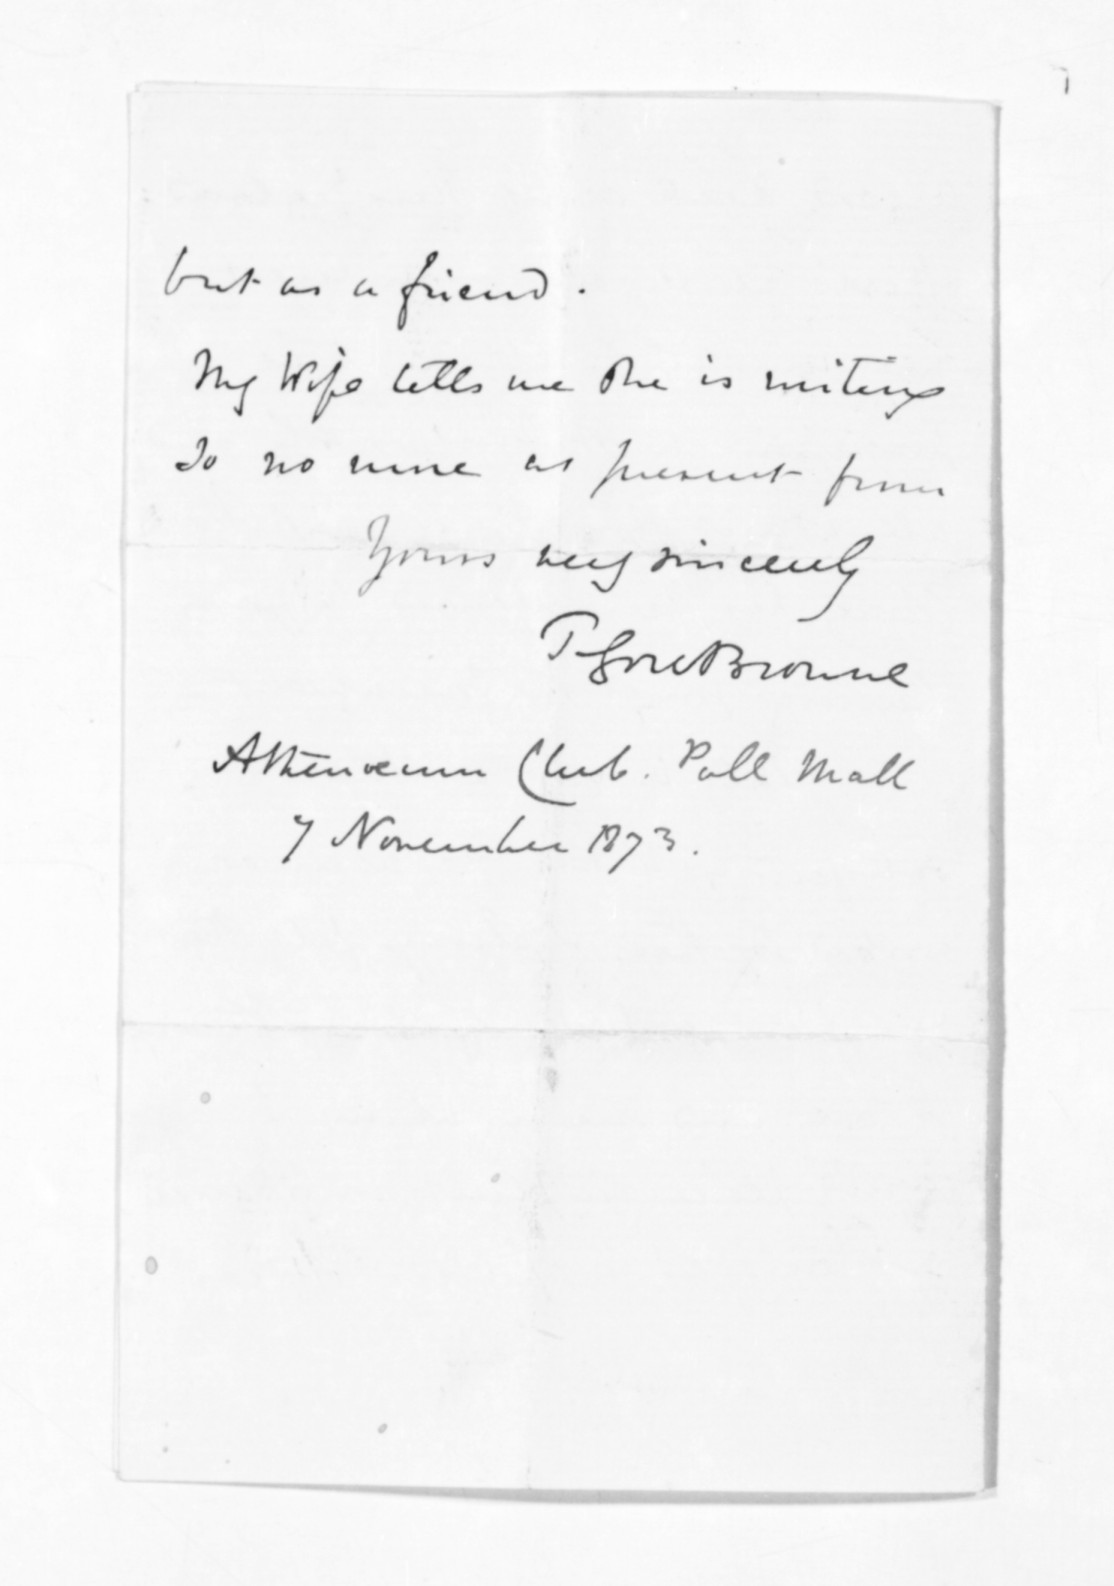 but as a friend.
My Wife tells me she is writing
So no more at present from
Yours very sincerely
T Gore Browne
Athenaeum Club. Pall Mall
7 November 1873.